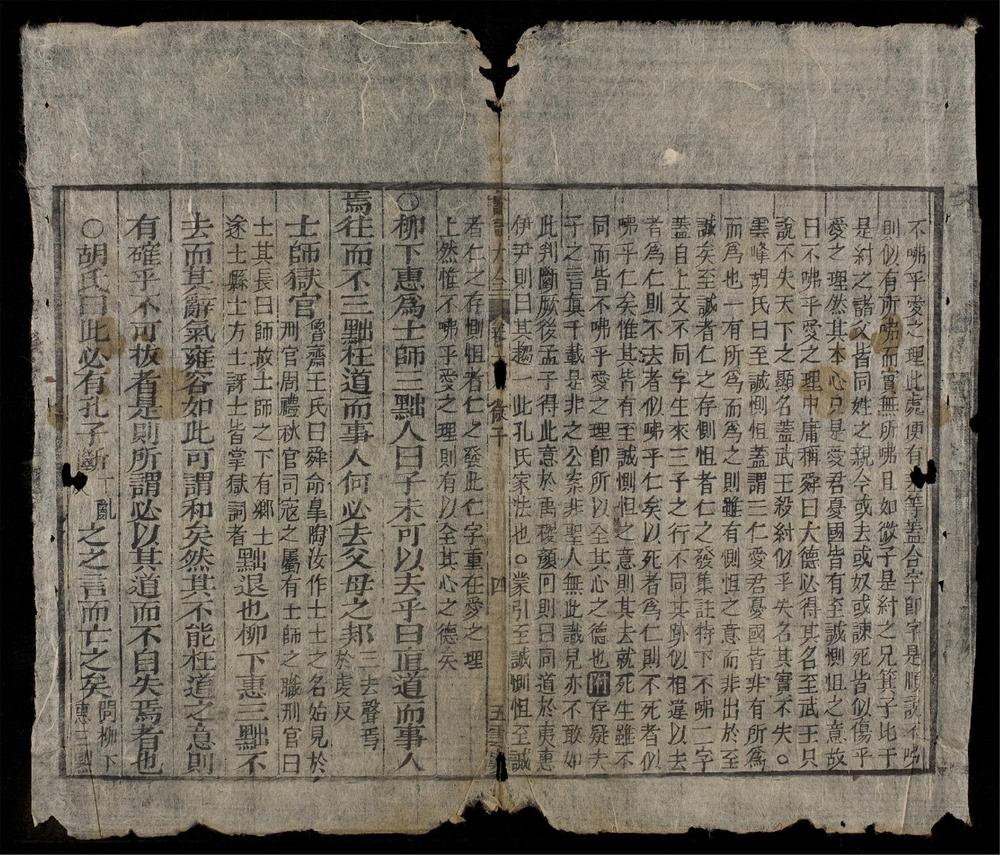 不咈乎愛之理此處便有等蓋合字卽字是順說不咈
則似有所咈而實無所咈且如微子是紂之兄箕子比干
是紂之諸父皆同姓之親今或去或奴或諫死皆似傷乎
愛之理然其本心只是愛君憂國皆有至誠惻怛之意故
曰不咈乎愛之理中庸稱舜曰大德必得其名至武王只
說不失天下之顯名蓋武王殺紂似乎失名其實不失○
雲峰胡氏曰至誠惻怛蓋謂三仁愛君憂國皆非有所爲
而爲也一有所爲而爲之則雖有惻怛之意而非出於至
誠矣至誠者仁之存惻怛者仁之發集註特下不咈二字
蓋自上文不同字生來三子之行不同其跡似相違以去
者爲仁則不去者似咈乎仁矣以死者爲仁則不死者似
咈乎仁矣惟其皆有至誠惻怛之意則其去就死生雖不
同而皆不咈乎愛之理卽所以全其心之德也附存疑夫
子之言眞千載是非之公案非聖人無此識見亦不敢如
此判斷厥後孟子得此意於禹稷顏回則曰同道於夷惠
伊尹則曰其趨一此孔氏家法也○蒙引至誠惻怛至誠
四
者仁之存惻怛者仁之發此仁字重在愛之理
上然惟不咈乎愛之理則有以全其心之德矣
○柳下惠爲士師三黜人曰子未可以去乎曰直道而事人
焉往而不三黜枉道而事人何必去父母之邦三去聲焉於虔反
士師獄官魯齋王氏曰舜命皐陶汝作士士之名始見於刑官周禮秋官司寇之屬有士師之職刑官曰
士其長曰師故士師之下有鄉士遂士縣士方士訝士皆掌獄詞者黜退也柳下惠三黜不
去而其辭氣雍容如此可謂和矣然其不能枉道之意則
有確乎不可拔者是則所謂必以其道而不自失焉者也
○胡氏曰此必有孔子斷丁亂之之言而亡之矣問柳下惠三黜